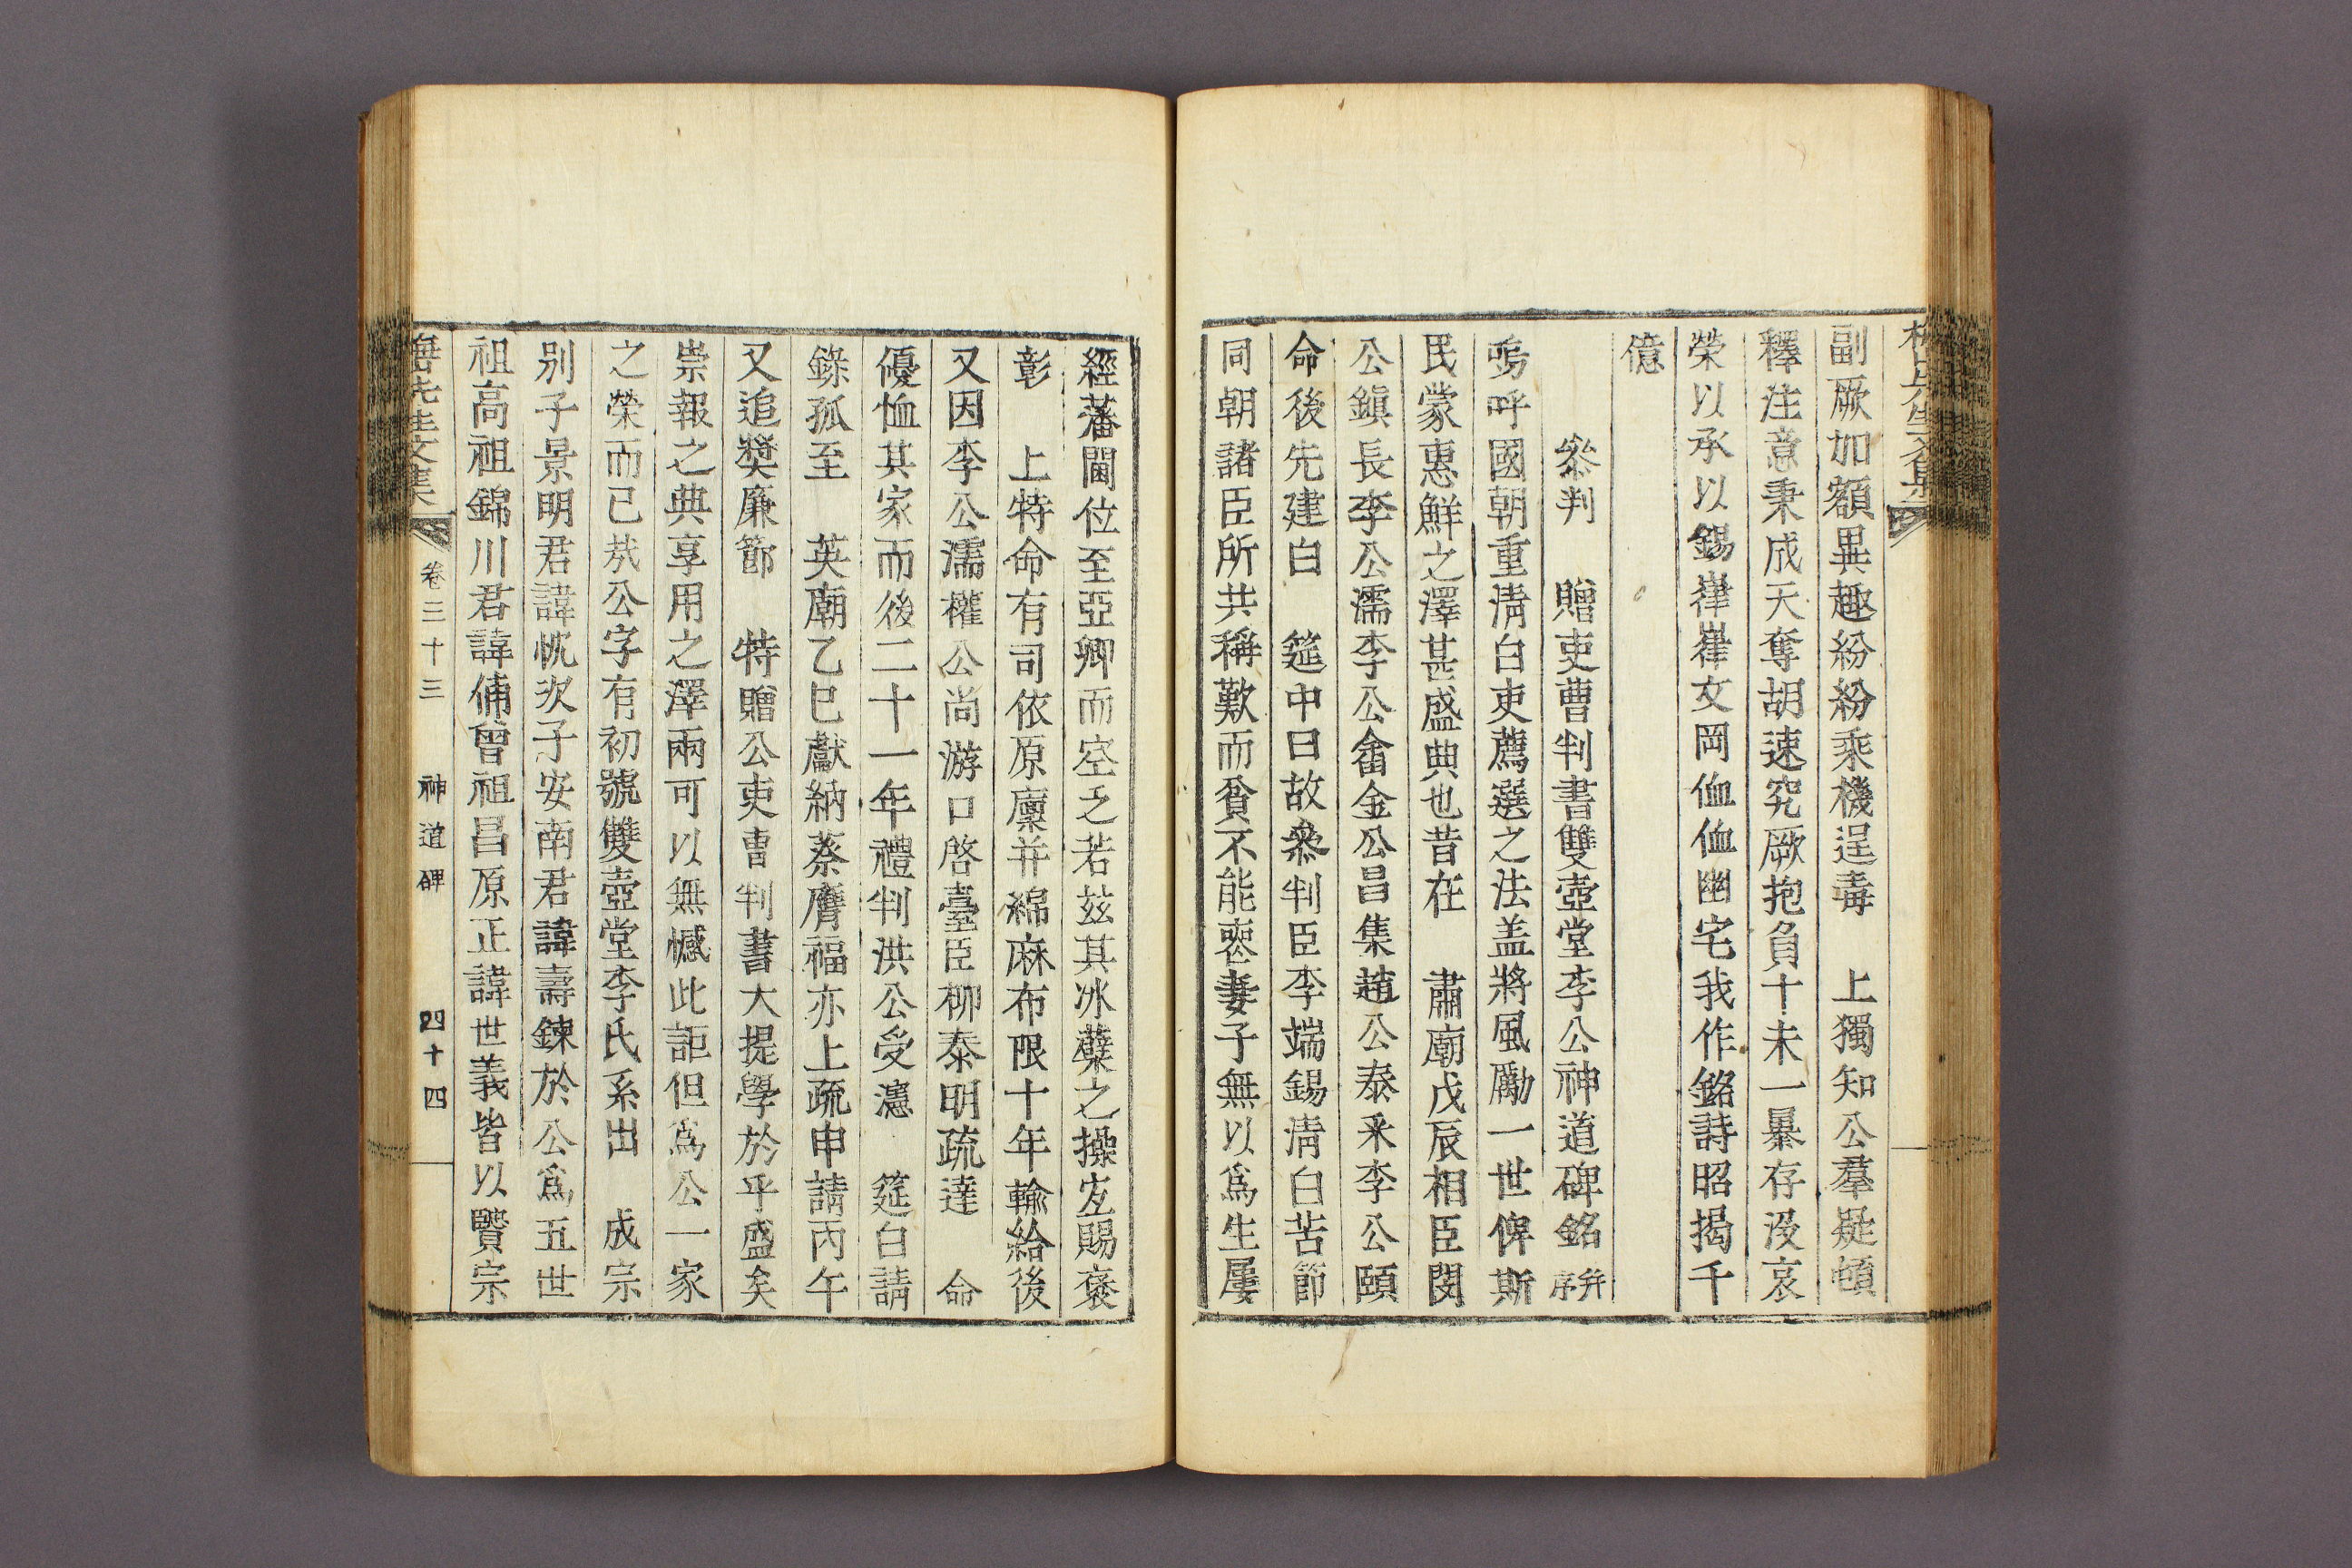 副厥加額異趣紛紛乘機逞毒　上獨知公羣疑頓
釋注意秉成天奪胡速究厥抱負十未一暴存沒哀
榮以承以錫嵂嶊文岡侐侐幽宅我作銘詩昭揭千
億
叅判　贈吏曹判書雙壺堂李公神道碑銘 幷序
嗚呼國朝重淸白吏薦選之法盖將風勵一世俾斯
民蒙惠鮮之澤甚盛典也昔在　肅廟戊辰相臣閔
公鎭長李公濡李公畬金公昌集趙公泰采李公頤
命後先建白　筵中曰故叅判臣李端錫淸白苦節
同朝諸臣所共稱歎而貧不能喪妻子無以爲生屢
經藩閫位至亞卿而空乏若玆其氷蘗之操宜賜褒
彰　上特命有司依原廩幷綿麻布限十年輸給後
又因李公濡權公尙游口啓臺臣柳泰明疏達　命
優恤其家而後二十一年禮判洪公受瀗　筵白請
錄孤至　英廟乙巳獻納蔡膺福亦上疏申請丙午
又追奬廉節　特贈公吏曹判書大提學於乎盛矣
崇報之典享用之澤兩可以無憾此詎但爲公一家
之榮而已㦲公字有初號雙壺堂李氏系出　成宗
别子景明君諱忱次子安南君諱壽鍊於公爲五世
祖高祖錦川君諱俌曾祖昌原正諱世義皆以賢宗
卷三十三　神道碑　四十四